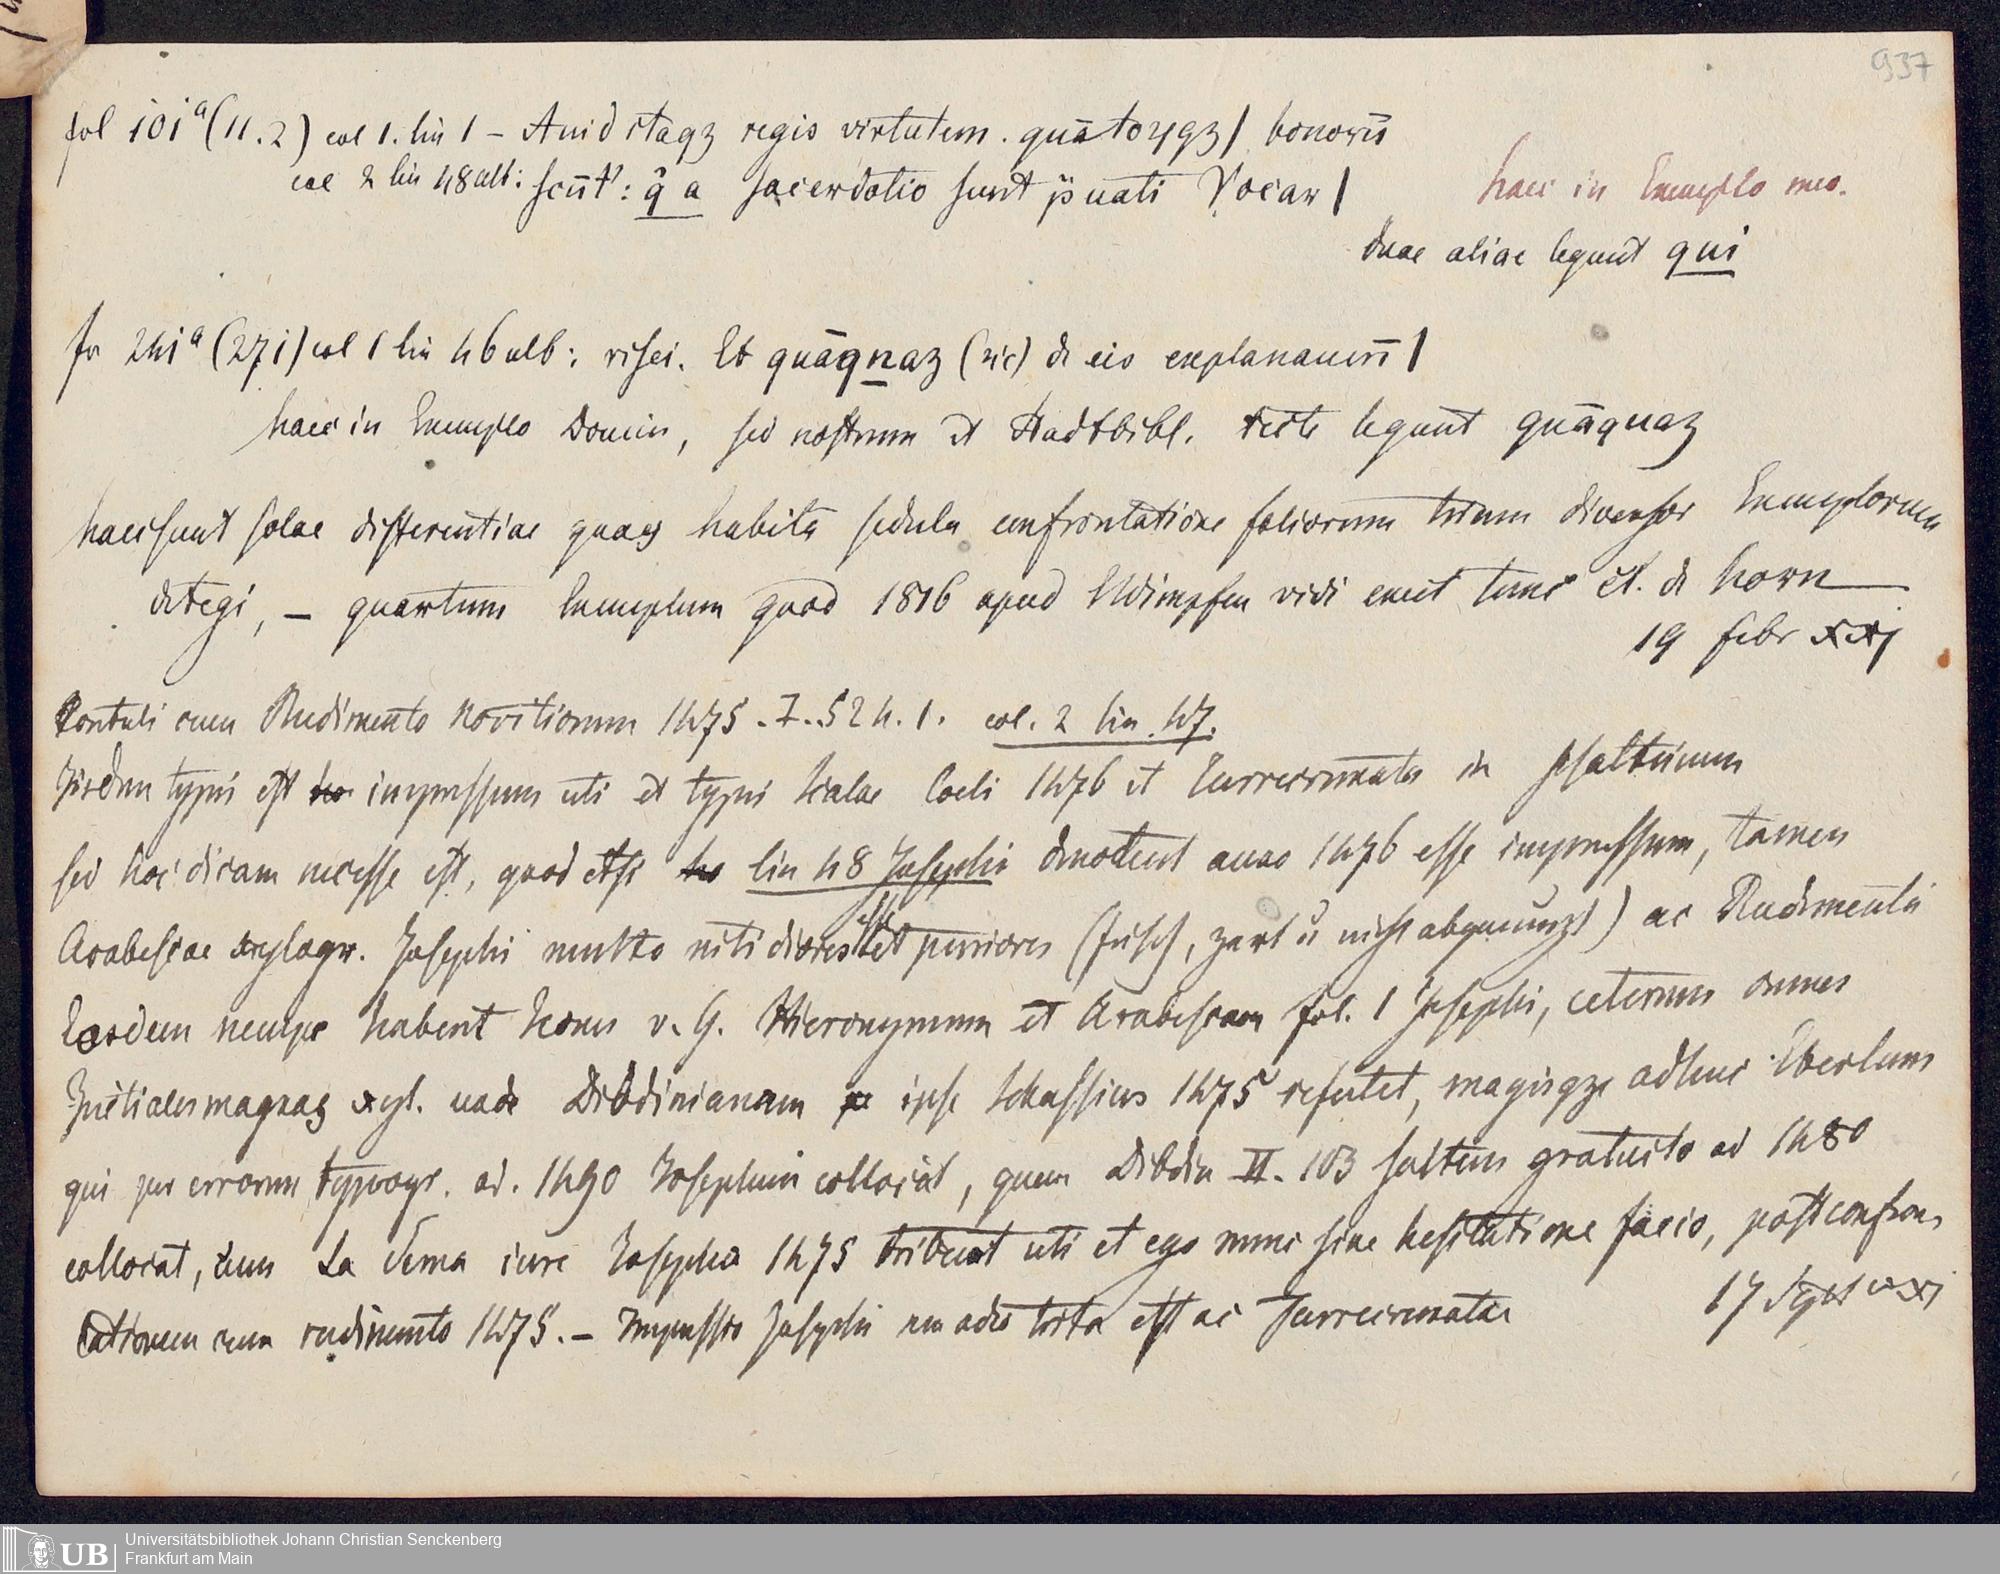 937
fol 101a (11.2) col 1. lin 1 – Auid itaqz regis virtutem. quātoꝝqz / bonorū
col 2 lin 48 alb: scūt': q̄ a sacerdotio sunt puati Vocar /
haec in Exemplo meo.
duae aliae legunt qui
fo 241a (271) col 1 lin 46 alb: risci. Et quāqnaz (sic) de eis explanauerū /
haec in Exemplo Domin, sed nostrum et Stadtbibl. recte legunt quāquaz
haec sunt solae differentiae quas habita sedula confrontatione foliorum trium diversor Exemplorum
detegi, – quartum Exemplum quod 1816 apud vidi emit tunc cl. de horn
19 febr xxj
Contuli cum Rudimento Novitiorum 1475. I. 524. 1. col. 2 lin. 47.
Iisdem typis est impressum uti et typis Scalae Coeli 1476 et Turrecremata in psalterium
sed hoc dicam necesse est, quod etsi lin 48 Josephi denotent anno 1476 esse impressum, tamen
Arabescae xylogr. Josephi multo nitidiores esse et puriores (frisch, zart u nicht abgenunzt) ac Rudimenta
Easdem nempe habent Icones v. G. Hieronymum et Arabescam fol. 1 Josephi, ceterum omnes
Initiales magnas xyl. unde Dibdinianam ipse Schassius 1475 refutet, magisqz adhuc Eberlum
qui per errorem typogr. ad. 1490 Josephum collocat, quem Dibdin VI. 103 saltem gratuito ad 1480
collocat, dum La Serna iure Josepho 1475 tribuat uti et ego nunc sine hesitatione facio, post confron
tationem cum rudimento 1475. – Impressio Josephi adeo est ac Turrecremata
17 Sept xxj
Universitätsbibliothek Johann Christian Senckenberg
UB
Frankfurt am Main